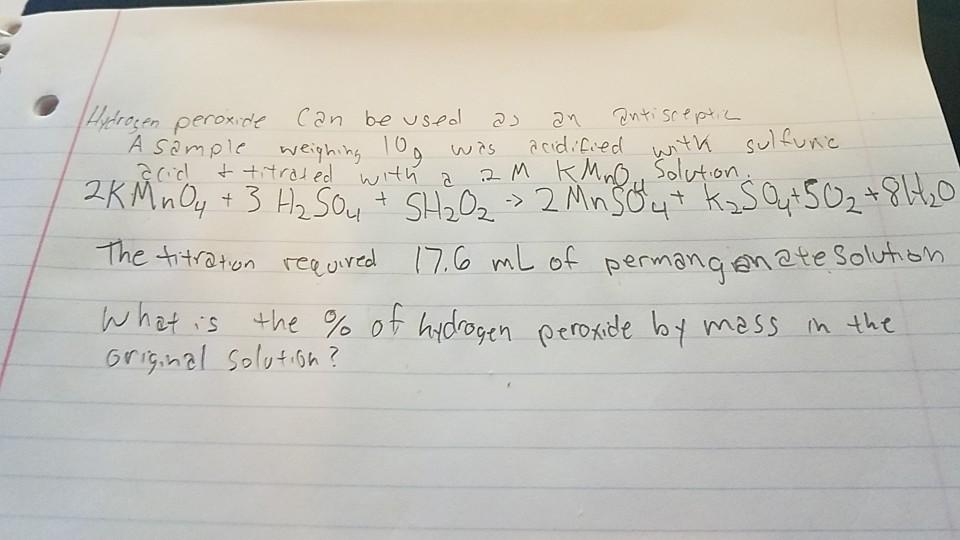 Hydrogen peroxide Can be used as an antisceptic
A sample weighing 10g was acidified with sulfuric
acid + titrated with a .2 M KMnO4 Solution.
2KMnO4 + 3 H2SO4 + 5H2O2 -> 2 MnSO4 + K2SO4 + 5O2 + 8H2O
The titration required 17.6 mL of permanganate Solution
What is the % of hydrogen peroxide by mass in the
original solution?